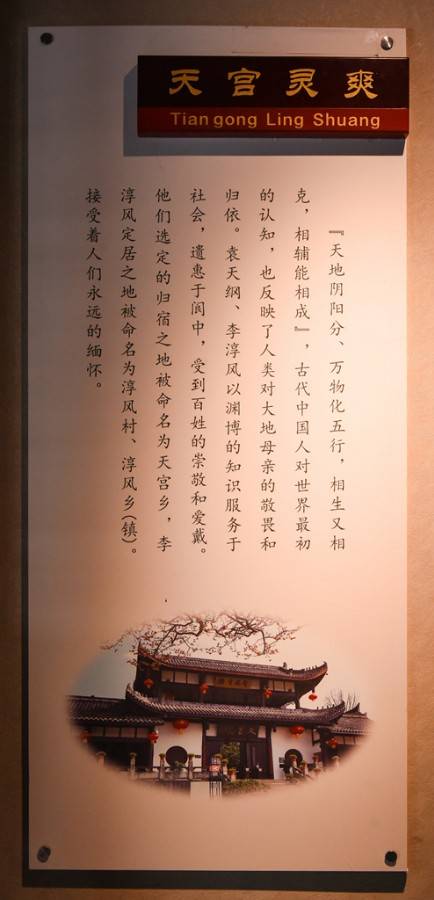 天宫灵爽
Tian gong Ling Shuang
『天地阴阳分、万物化五行，相生又相
克，相辅能相成』，古代中国人对世界最初
的认知，也反映了人类对大地母亲的敬畏和
归依。袁天纲、李淳风以渊博的知识服务于
社会，遗惠于阆中，受到百姓的崇敬和爱戴。
他们选定的归宿之地被命名为天宫乡，李
淳风定居之地被命名为淳风村、淳风乡（镇）。
接受着人们永远的缅怀。